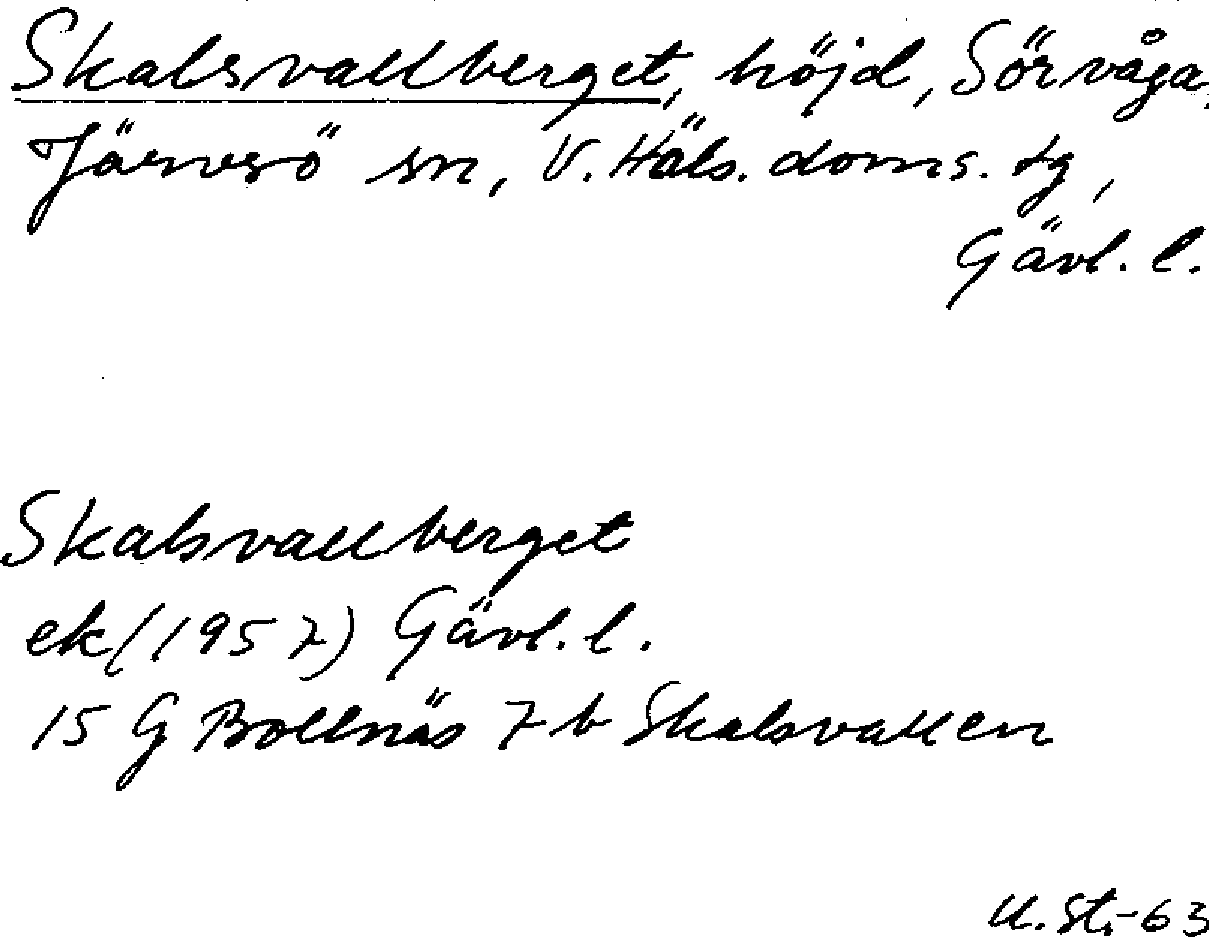 Skalsvallberget, höjd, Sörvåga,
Järvsö sn, V. Häls. doms. tg,
Gävl. l.
Skalsvallberget
ek (1957) Gävl. l.
15 G Bollnäs 7 b Skalsvallen
U. St. -63